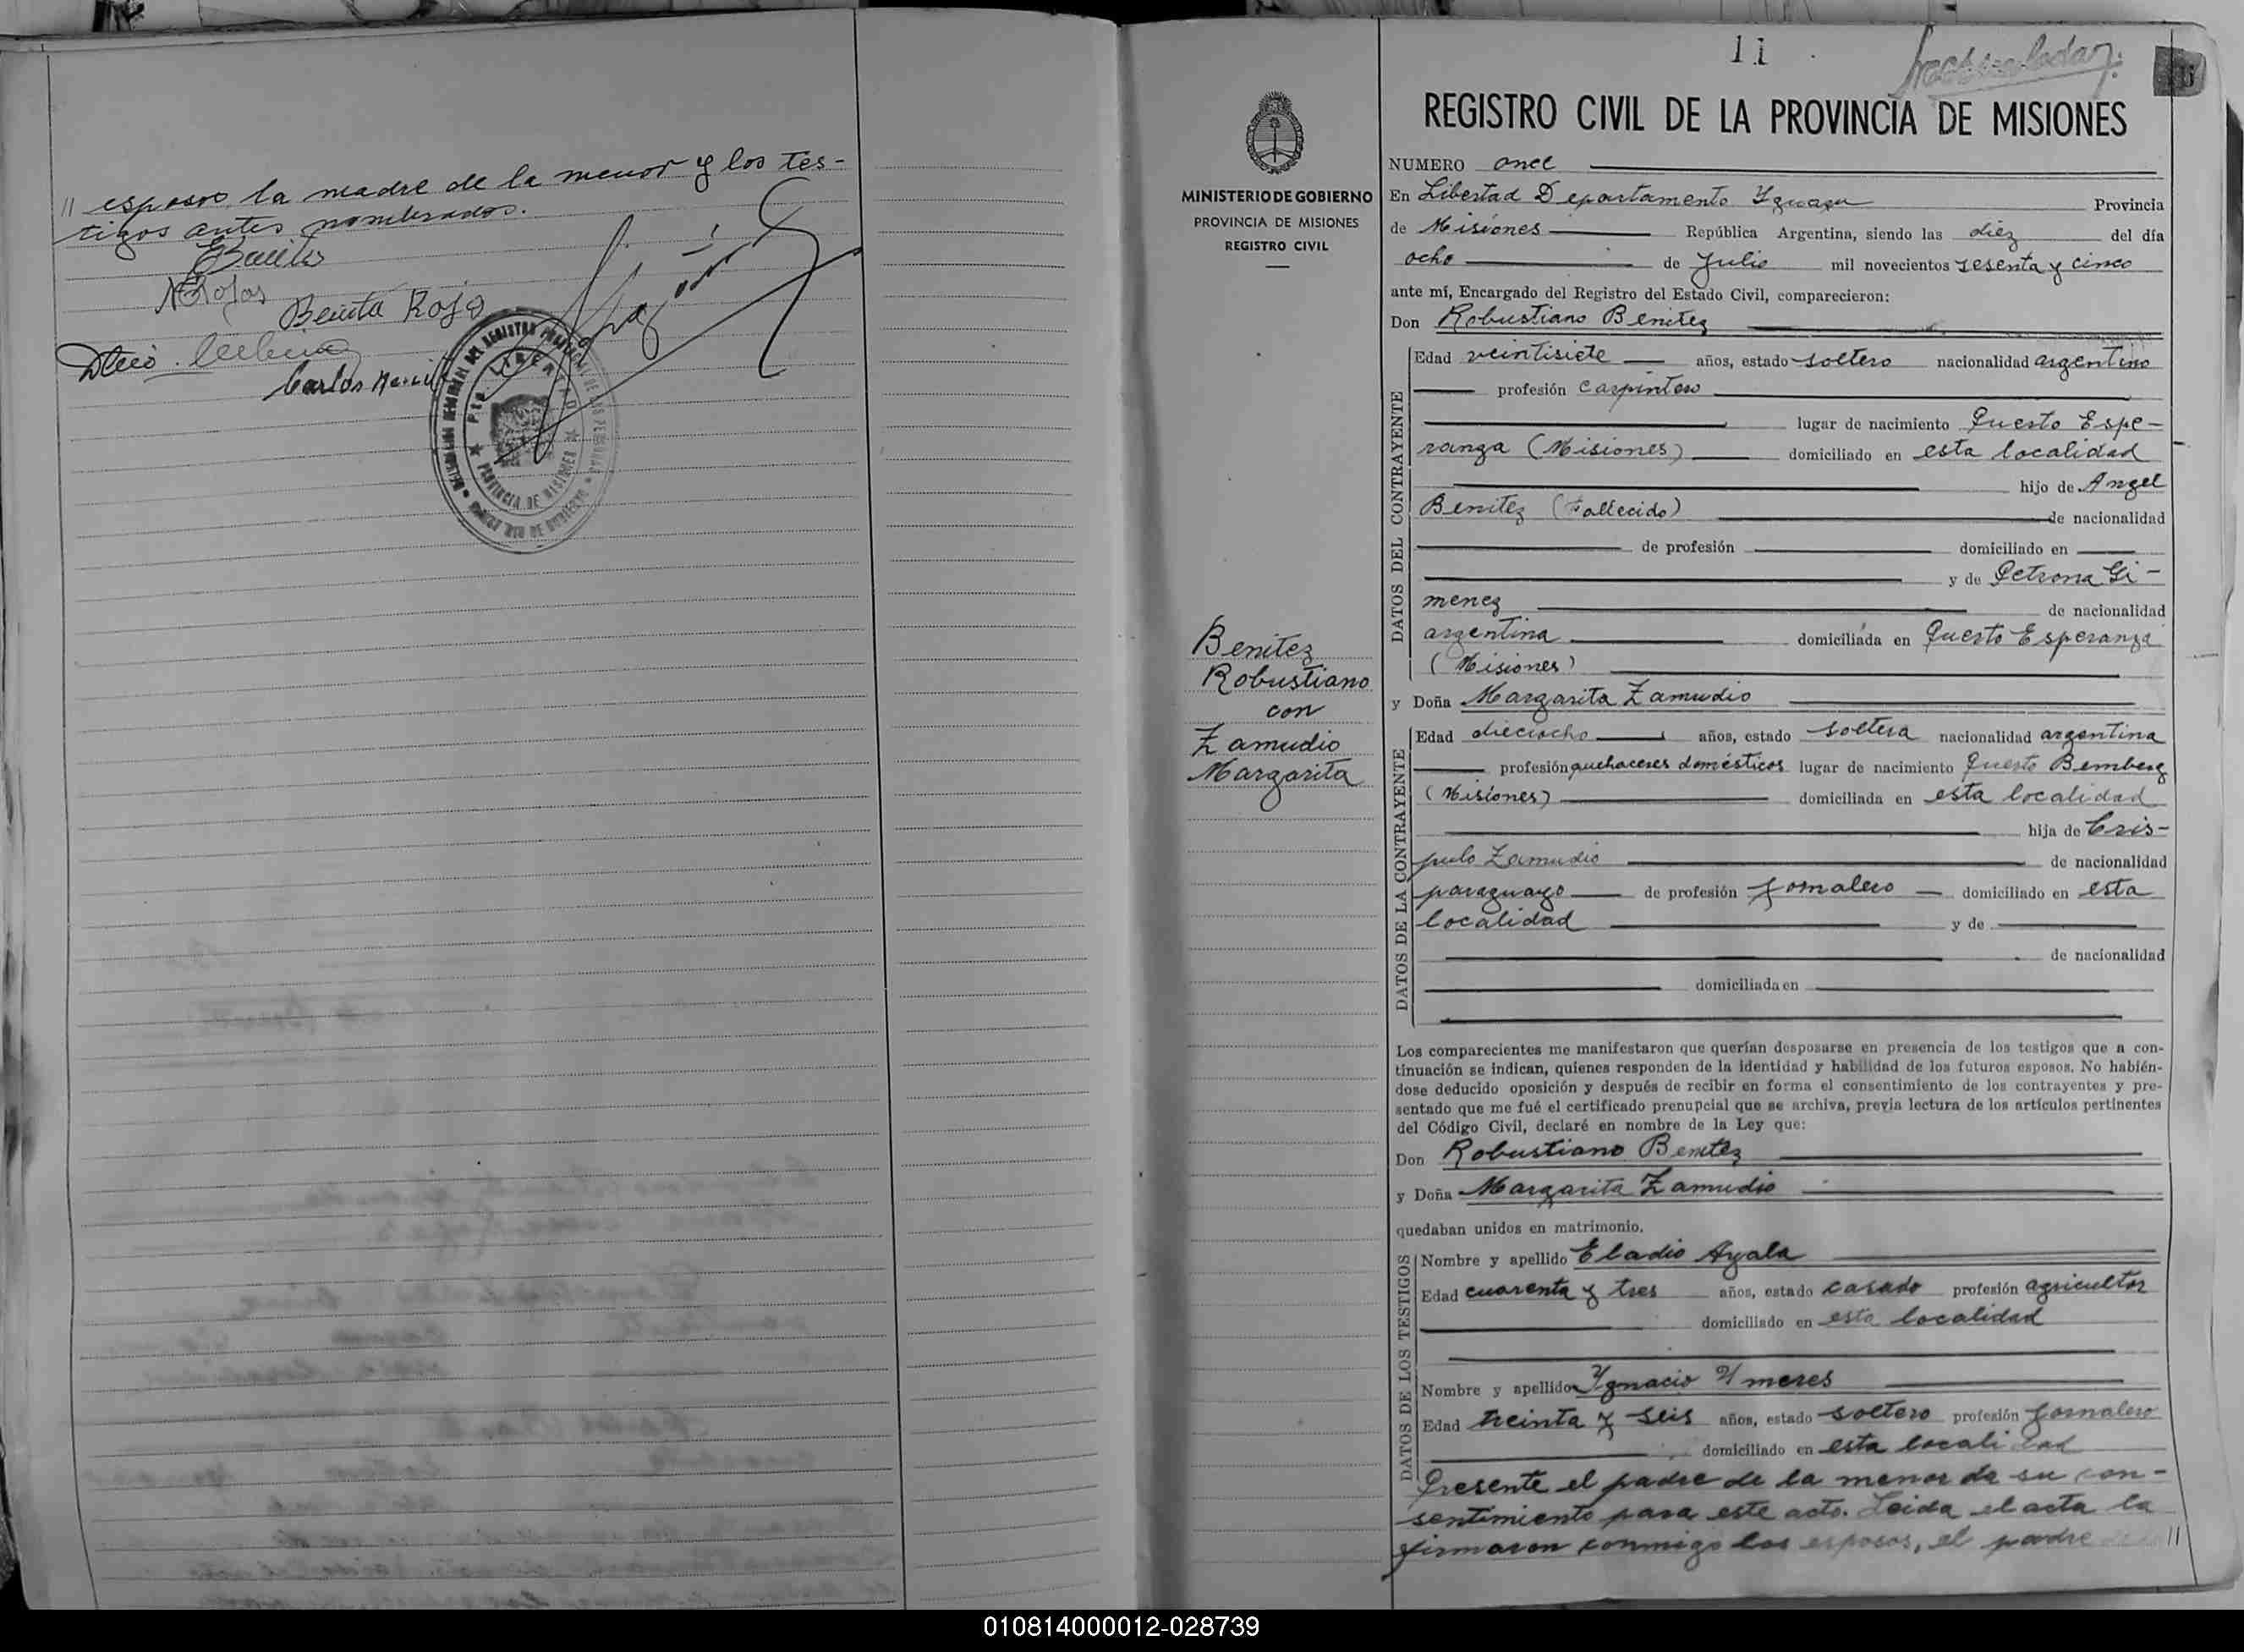 // esposos, la madre de la menor y los tes-
tigos antes nombrados.
Benita Rojas
Carlos
PROVINCIA DE MISIONES
11
REGISTRO CIVIL DE LA PROVINCIA DE MISIONES
MINISTERIO DE GOBIERNO
PROVINCIA DE MISIONES
REGISTRO CIVIL
Benitez
Robustiano
con
Zamudio
Margarita
NUMERO once
En Libertad Departamento Yguazu Provincia
de Misiones República Argentina, siendo las diez del día
ocho de Julio mil novecientos sesenta y cinco
ante mí, Encargado del Registro del Estado Civil, comparecieron:
Don Robustiano Benitez
DATOS DEL CONTRAYENTE
Edad veintisiete años, estado soltero nacionalidad argentino
profesión carpintero
lugar de nacimiento Puerto Espe-
ranza (Misiones) domiciliado en esta localidad
hijo de Angel
Benitez (Fallecido) de nacionalidad
de profesión domiciliado en
y de Petrona Gi-
menez de nacionalidad
argentina domiciliada en Puerto Esperanza
(Misiones)
y Doña Margarita Zamudio
DATOS DE LA CONTRAYENTE
Edad dieciocho años, estado soltera nacionalidad argentina
profesión quehaceres domésticos lugar de nacimiento Puerto Bemberg
(Misiones) domiciliada en esta localidad
hija de Cris-
pulo Zamudio de nacionalidad
paraguayo de profesión jornalero domiciliado en esta
localidad y de
de nacionalidad
domiciliada en
Los comparecientes me manifestaron que querían desposarse en presencia de los testigos que a con-
tinuación se indican, quienes responden de la identidad y habilidad de los futuros esposos. No habién-
dose deducido oposición y después de recibir en forma el consentimiento de los contrayentes y pre-
sentado que me fué el certificado prenupcial que se archiva, previa lectura de los artículos pertinentes
del Código Civil, declaré en nombre de la Ley que:
Don Robustiano Benitez
y Doña Margarita Zamudio
quedaban unidos en matrimonio.
DATOS DE LOS TESTIGOS
Nombre y apellido Eladio Ayala
Edad cuarenta y tres años, estado casado profesión agricultor
domiciliado en esta localidad
Nombre y apellido Ygnacio Ymeres
Edad treinta y seis años, estado soltero profesión jornalero
domiciliado en esta localidad
Presente el padre de la menor da su con-
sentimiento para este acto. Leida el acta la
firmaron conmigo los esposos, el padre //
010814000012-028739